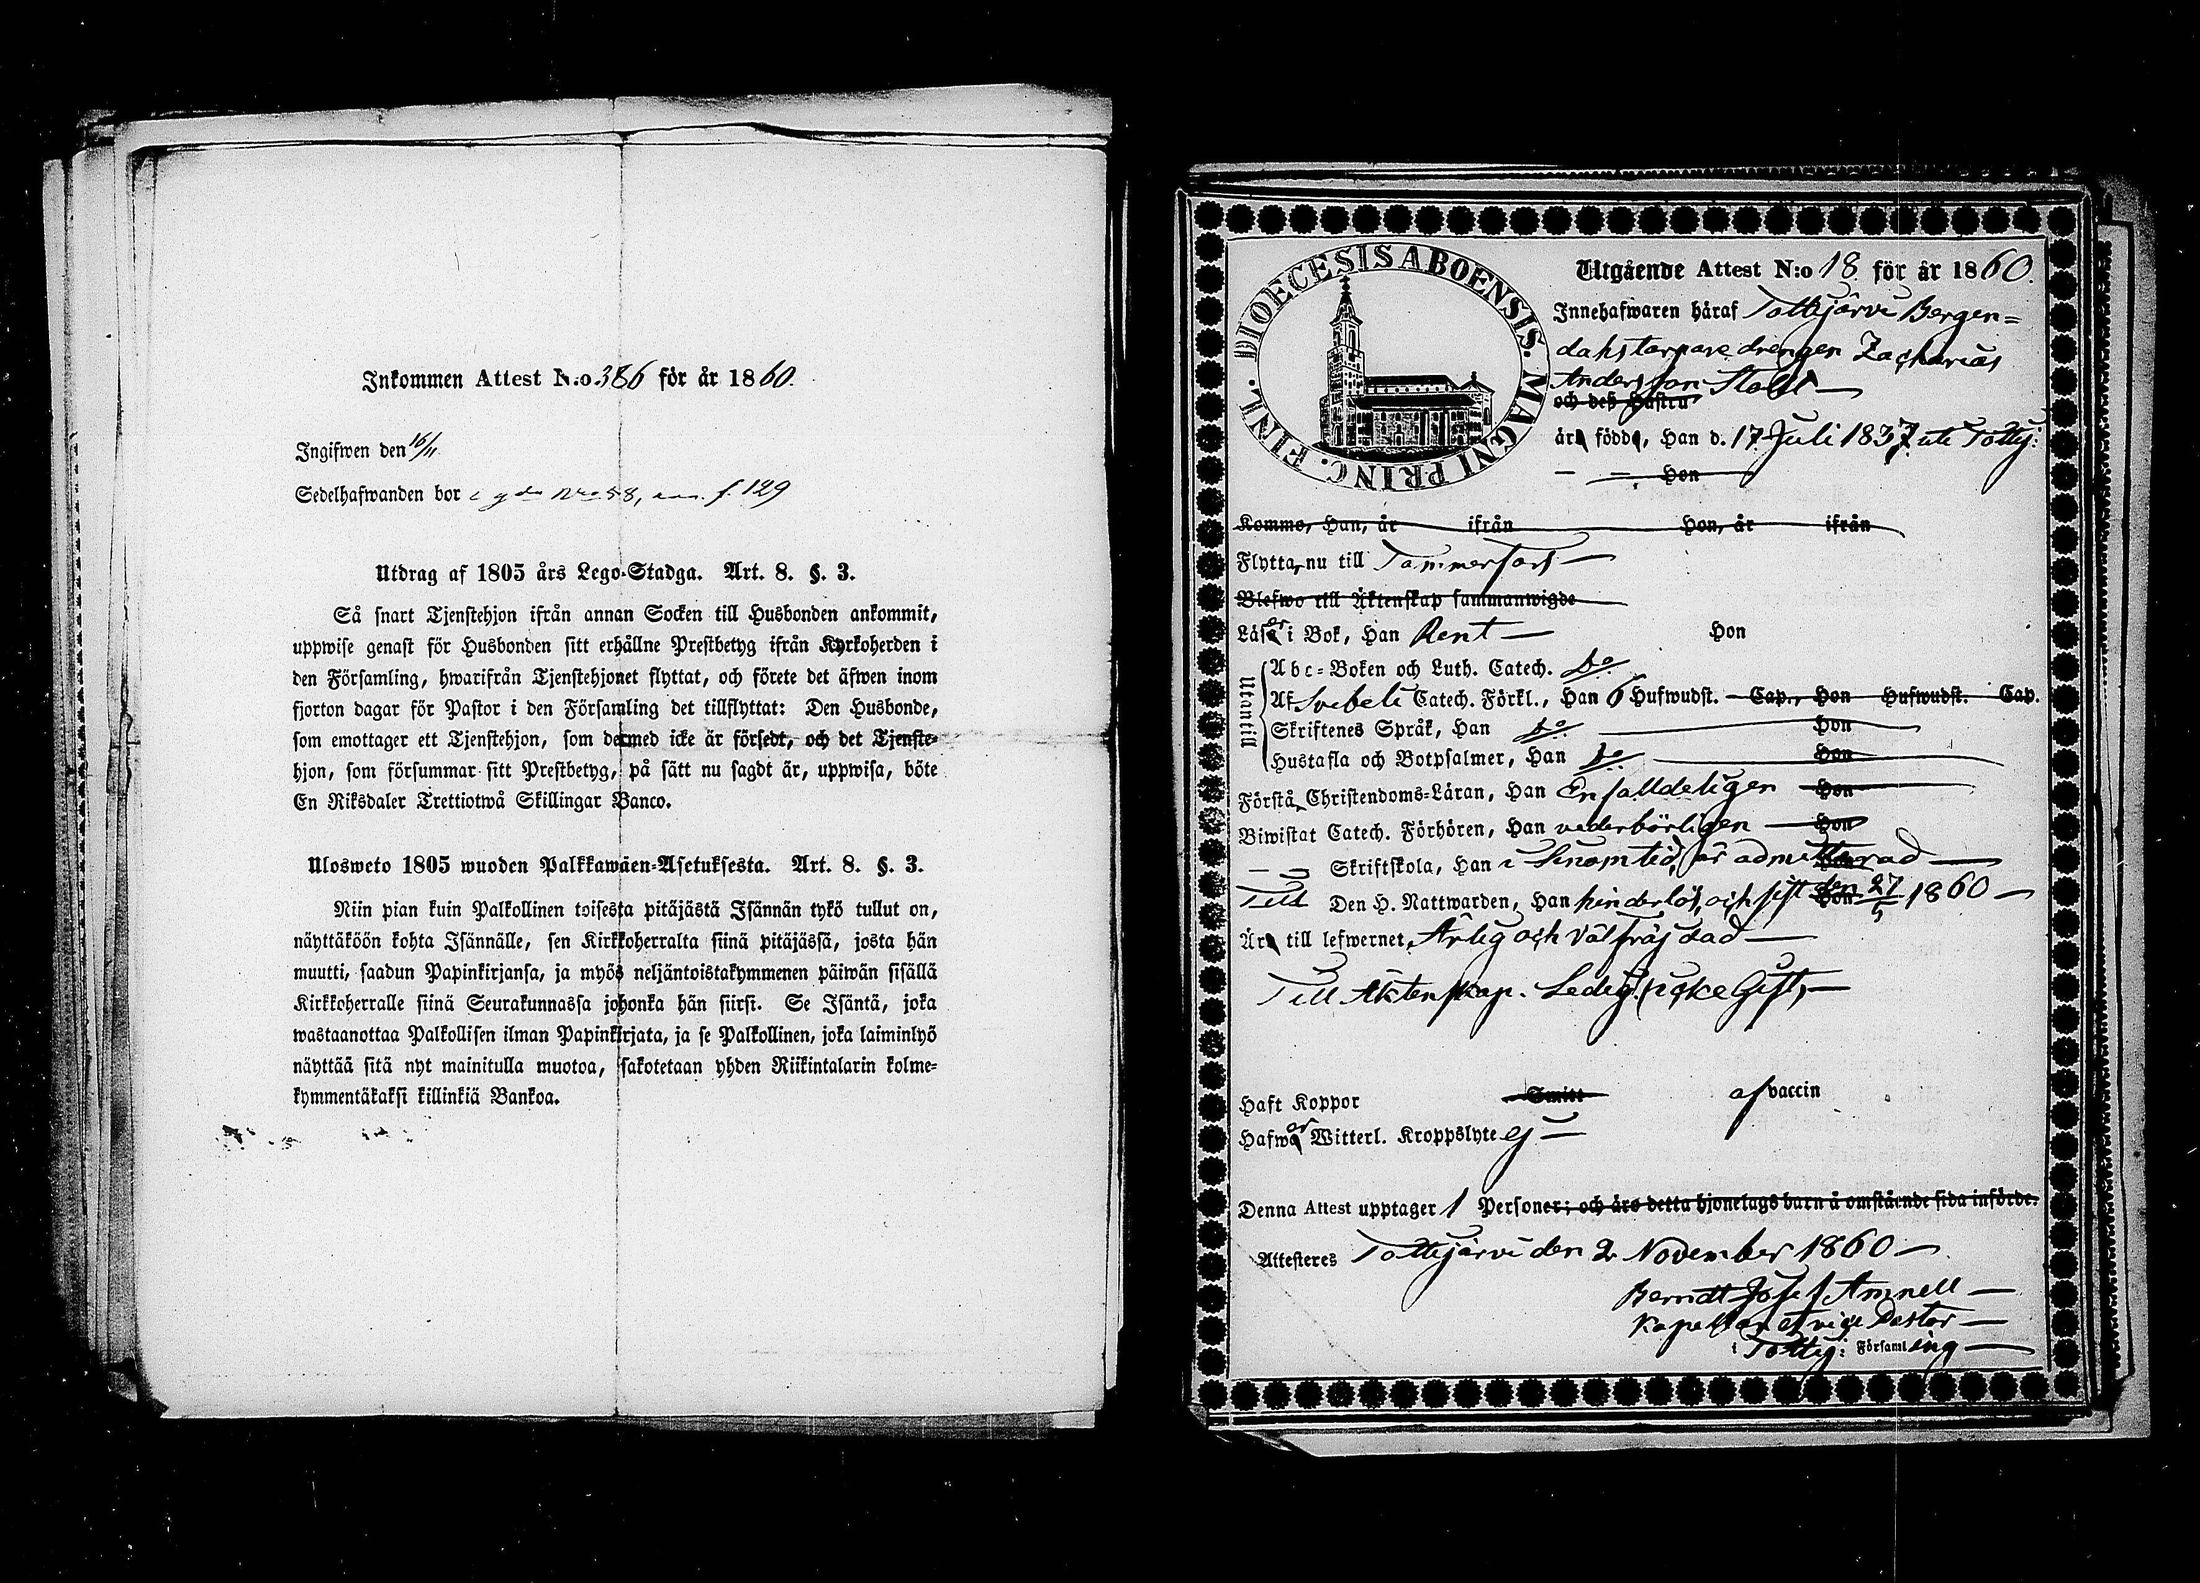 Inkommen Attest N:o 386 för år 1860.
Ingifwen den 16/11
Sedelhafwanden bor i gdn Nro 58, f. 129
Utdrag af 1805 års Lego-Stadga. Art. 8. §. 3.
Så snart Tjenstehjon ifrån annan Socken till Husbonden ankommit,
uppwise genast för Husbonden sitt erhållne Prestbetyg ifrån Kyrkoherden i
den Församling, hwarifrån Tjenstehjonet flyttat, och förete det äfwen inom
fjorton dagar för Pastor i den Församling det tillflyttat: Den Husbonde,
som emottager ett Tjenstehjon, som dermed icke är försedt, och det Tjenste-
hjon, som försummar sitt Prestbetyg, på sätt nu sagdt är, uppwisa, böte
En Riksdaler Trettiotwå Skillingar Banco.
Ulosweto 1805 wuoden Palkkawäen-Asetuksesta. Art. 8. §. 3.
Niin pian kuin Palkollinen toisesta pitäjästä Isännän tykö tullut on,
näyttäköön kohta Isännälle, sen Kirkkoherralta siinä pitäjässä, josta hän
muutti, saadun Papinkirjansa, ja myös neljäntoistakymmenen päiwän sisällä
Kirkkoherralle siinä Seurakunnassa johonka hän siirsi. Se Isäntä, joka
wastaanottaa Palkollisen ilman Papinkirjata, ja se Palkollinen, joka laiminlyö
näyttää sitä nyt mainitulla muotoa, sakotetaan yhden Riikintalarin kolme-
kymmentäkaksi killinkiä Bankoa.
DIOECESIS ABOENSIS. MAGNI PRINC. FINL.
Utgående Attest N:o 18 för år 1860.
Innehafwaren häraf Tottijärvi Bergen=
dahls torpare drengen Zacharias
Andersson Ståldt
och deß Hustru
är född, Han d. 17 Juli 1837 uti Tottij:
Hon
Kommo, Han, år ifrån Hon, år ifrån
Flytta, nu till Tammerfors
Blefwo till Äktenskap sammanwigde
Läser i Bok, Han Rent Hon
Utantill
Abc-Boken och Luth. Catech. do
Af Svebeli Catech. Förkl., Han 6 Hufwudst. Cap., Hon Hufwudst. Cap.
Skriftenes Språk, Han do Hon
Hustafla och Botpsalmer, Han do Hon
Förstå Christendoms-Läran, Han Enfalldeligen Hon
Biwistat Catech. Förhören, Han vederbörligen Hon
Skriftskola, Han i sinom tid, är admitterad
Till Den H. Nattwarden, Han hinderlös, och sist den 27/5 1860
Är till lefwernet, Ärlig och välfräjdad
Till Äktenskap. Ledig, icke Gift,
Haft Koppor Smitt af vaccin
Hafwer Witterl. Kroppslyte ej
Denna Attest upptager 1 Personer; och äro detta hjonelags barn å omstående sida införde.
Attesteres Tottijärvi den 2 November 1860
Berndt Josef Amnell
Kapellan et vice Pastor
i Tottij: Församling